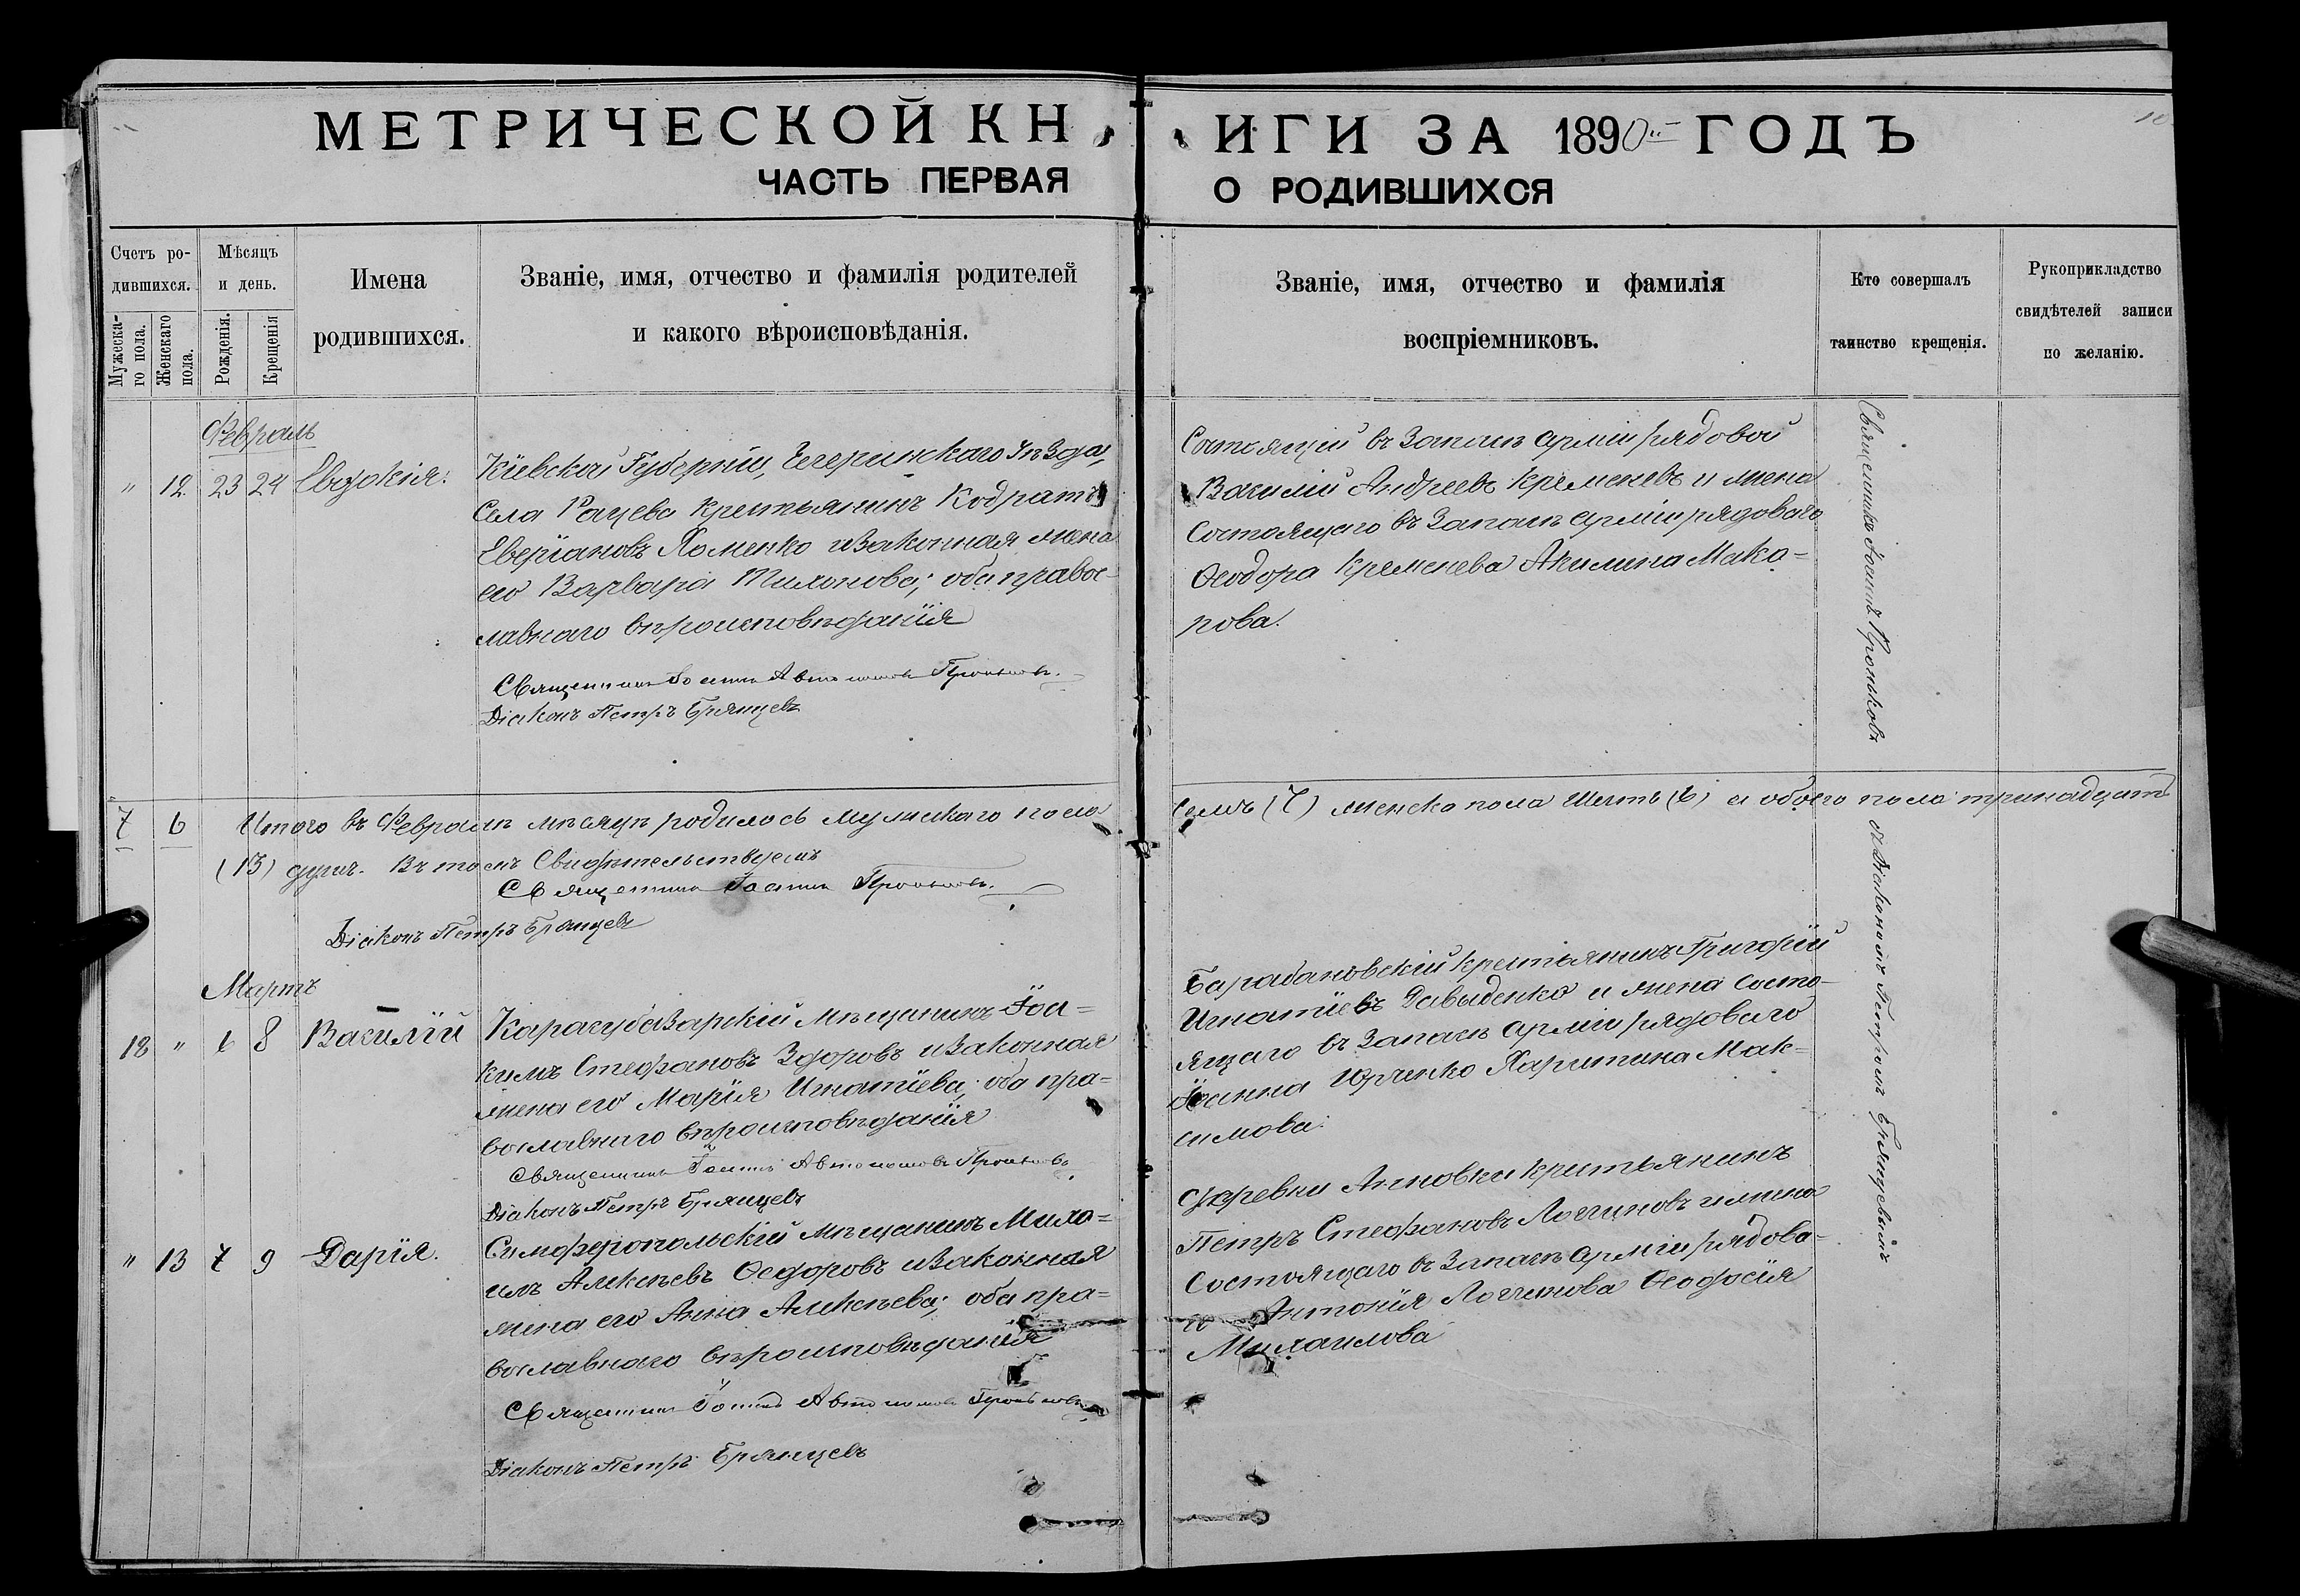 МЕТРИЧЕСКОЙ КНИГИ ЗА 1890 ГОДЪ
ЧАСТЬ ПЕРВАЯ О РОДИВШИХСЯ
Счетъ ро-
дившихся.
Мужеска-
го пола.
Женскаго
пола.
Мѣсяцъ
и день.
Рожденія.
Крещенія
Имена
родившихся.
Званіе, имя, отчество и фамилія родителей
и какого вѣроисповѣданія.
Званіе, имя, отчество и фамилія
воспріемниковъ.
Кто совершалъ
таинство крещенія.
Рукоприкладство
свидѣтелей записи
по желанію.
Февраль
" 12 23 24 Евдокія.
Кіевской Губерніи, Чегеринскаго Уѣзда,
Села Рацева крестьянинъ Кодратъ
Еверіановъ Хоменко и законная жена
его Варвара Тихонова; оба правос-
лавнаго вѣроисповѣданія
Священникъ Іоаннъ Автономовъ Проньковъ.
Діаконъ Петръ Брянцевъ
Состоящій въ Запасѣ арміи рядовой
Василій Андреевъ Кременевъ и жена
Состоящаго въ Запасѣ арміи рядоваго
Ѳеодора Кременева Акилина Мака-
рова.
Священникъ Іоаннъ Проньковъ
7 6 Итого въ Февралѣ мѣсяцѣ родилось мужскаго пола семь (7) женско пола Шесть (6) а обоего пола тринадцать
(13) душъ. Въ томъ Свидѣтельствуемъ
Священникъ Іоаннъ Проньковъ.
Діаконъ Петръ Брянцевъ
съ Діакономъ Петромъ Брянцевымъ
Мартъ
18 " 6 8 Василій
Карасубазарскій Мѣщанинъ Іоа-
кимъ Стефановъ Здоровъ и законная
жена его Марія Игнатіева; оба пра-
вославнаго вѣроисповѣданія
Священникъ Іоаннъ Автономовъ Проньковъ
Діаконъ Петръ Брянцевъ
Барабановскій крестьянинъ Григорій
Игнатіевъ Давыденко и жена Состо-
ящаго въ Запасѣ арміи рядоваго
Іоанна Юрченко Харитина Мак-
симова.
" 13 7 9 Дарія.
Симферопольскій мѣщанинъ Миха-
илъ Алексѣевъ Ѳедоровъ и законная
жена его Анна Алексѣева; оба пра-
вославнаго вѣроисповѣданія
Священникъ Іоаннъ Автономовъ Проньковъ
Діаконъ Петръ Брянцевъ
деревни Анновки крестьянинъ
Петръ Стефановъ Логгиновъ и жена
Состоящаго въ Запасѣ арміи рядова-
го Антонія Логгинова Ѳеодосія
Михаилова